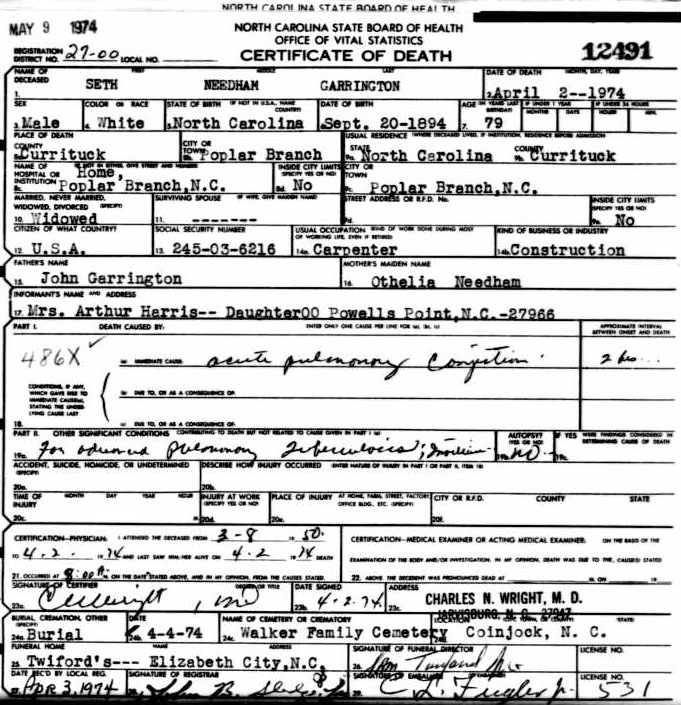 NORTH CAROLINA STATE BOARD OF HEALTH
MAY 9 1974
NORTH CAROLINA STATE BOARD OF HEALTH
OFFICE OF VITAL STATISTICS
REGISTRATION DISTRICT NO. 27-00 LOCAL NO.
CERTIFICATE OF DEATH
12491
NAME OF DECEASED FIRST MIDDLE LAST DATE OF DEATH MONTH, DAY, YEAR
1. SETH NEEDHAM GARRINGTON 2. April 2--1974
SEX COLOR OR RACE STATE OF BIRTH (IF NOT IN U.S.A., NAME COUNTRY) DATE OF BIRTH AGE (IN YEARS LAST BIRTHDAY) IF UNDER 1 YEAR IF UNDER 24 HOURS
MONTHS DAYS HOURS MIN.
3. Male 4. White 5. North Carolina 6. Sept. 20-1894 7. 79
PLACE OF DEATH USUAL RESIDENCE (WHERE DECEASED LIVED, IF INSTITUTION, RESIDENCE BEFORE ADMISSION)
COUNTY CITY OR TOWN STATE COUNTY
Currituck Poplar Branch North Carolina Currituck
NAME OF HOSPITAL OR INSTITUTION (IF NOT IN EITHER, GIVE STREET AND NUMBER) INSIDE CITY LIMITS (SPECIFY YES OR NO) CITY OR TOWN
Home, Poplar Branch,N.C. 8d. No Poplar Branch,N.C.
MARRIED, NEVER MARRIED, WIDOWED, DIVORCED (SPECIFY) SURVIVING SPOUSE (IF WIFE, GIVE MAIDEN NAME) STREET ADDRESS OR R.F.D. No. INSIDE CITY LIMITS (SPECIFY YES OR NO)
10. Widowed 11. ------- 9d. 9e. No
CITIZEN OF WHAT COUNTRY? SOCIAL SECURITY NUMBER USUAL OCCUPATION (KIND OF WORK DONE DURING MOST OF WORKING LIFE, EVEN IF RETIRED) KIND OF BUSINESS OR INDUSTRY
12. U.S.A. 13. 245-03-6216 14a. Carpenter 14b. Construction
FATHER'S NAME MOTHER'S MAIDEN NAME
15. John Garrington 16. Othelia Needham
INFORMANT'S NAME AND ADDRESS
17. Mrs. Arthur Harris-- Daughter00 Powells Point,N.C.-27966
PART I. DEATH CAUSED BY: ENTER ONLY ONE CAUSE PER LINE FOR (a), (b), (c) APPROXIMATE INTERVAL BETWEEN ONSET AND DEATH
486X (a) IMMEDIATE CAUSE: acute pulmonary congestion 2 hrs
CONDITIONS, IF ANY, WHICH GAVE RISE TO IMMEDIATE CAUSE(A), STATING THE UNDERLYING CAUSE LAST
(b) DUE TO, OR AS A CONSEQUENCE OF:
18. (c) DUE TO, OR AS A CONSEQUENCE OF:
PART II. OTHER SIGNIFICANT CONDITIONS CONTRIBUTING TO DEATH BUT NOT RELATED TO CAUSE GIVEN IN PART I (a) AUTOPSY? (YES OR NO) IF YES WERE FINDINGS CONSIDERED IN DETERMINING CAUSE OF DEATH
19a. Far advanced pulmonary tuberculosis; 19b. No 19c.
ACCIDENT, SUICIDE, HOMICIDE, OR UNDETERMINED (SPECIFY) DESCRIBE HOW INJURY OCCURRED (ENTER NATURE OF INJURY IN PART I OR PART II, ITEM 18)
20a. 20b.
TIME OF INJURY MONTH DAY YEAR HOUR INJURY AT WORK (SPECIFY YES OR NO) PLACE OF INJURY AT HOME, FARM, STREET, FACTORY, OFFICE BLDG., ETC. (SPECIFY) CITY OR R.F.D. COUNTY STATE
20c. 20d. 20e. 20f.
CERTIFICATION—PHYSICIAN: I ATTENDED THE DECEASED FROM 3-8 1950. CERTIFICATION—MEDICAL EXAMINER OR ACTING MEDICAL EXAMINER: ON THE BASIS OF THE
TO 4.2. 1974 AND LAST SAW HIM/HER ALIVE ON 4.2 1974 DEATH EXAMINATION OF THE BODY AND/OR INVESTIGATION, IN MY OPINION, DEATH WAS DUE TO THE CAUSE(S) STATED
21. OCCURRED AT 8:00 M. ON THE DATE STATED ABOVE, AND IN MY OPINION, FROM THE CAUSES STATED. 22. ABOVE. THE DECEDENT WAS PRONOUNCED DEAD AT M. ON 19
SIGNATURE OF CERTIFIER DEGREE OR TITLE DATE SIGNED ADDRESS
23a. CNWright, MD 23b. 4.2.74. CHARLES N. WRIGHT, M. D.
JARVISBURG, N. C. 27947
BURIAL, CREMATION, OTHER (SPECIFY) DATE NAME OF CEMETERY OR CREMATORY LOCATION (STATE)
24a. Burial 24b. 4-4-74 24c. Walker Family Cemetery 24d. Coinjock, N. C.
FUNERAL HOME SIGNATURE OF FUNERAL DIRECTOR LICENSE NO.
25. Twiford's--- Elizabeth City,N.C. 26.
DATE REC'D BY LOCAL REG. SIGNATURE OF REGISTRAR SIGNATURE OF EMBALMER LICENSE NO.
27. APR 3, 1974 28. John B. 29. 531